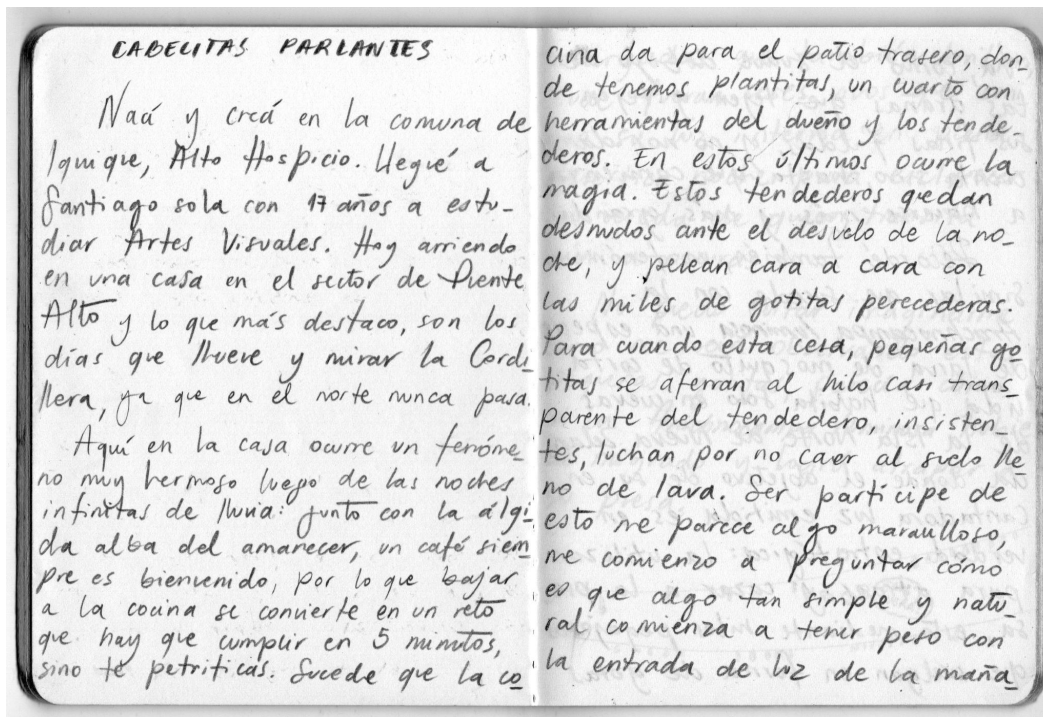 CABELITAS PARLANTES
Naá y creá en la comuna de
Iquique, Alto Hospicio. Llegué a
Santiago sola con 17 años a estu-
diar Artes Visuales. Hoy arriendo
en una casa en el sector de Puente
Alto y lo que más destaco, son los
días que llueve y mirar la Cordi_
llera, ya que en el norte nunca pasa.
Aquí en la casa ocurre un fenóme_
no muy hermoso luego de las noches
infinitas de lluvia: junto con la álgi_
da alba del amanecer, un café siem_
pre es bienvenido, por lo que bajar
a la cocina se convierte en un reto
que hay que cumplir en 5 minutos,
sino te petrificas. Sucede que la co_
cina da para el patio trasero, don_
de tenemos plantitas, un cuarto con
herramientas del dueño y los tende_
deros. En estos últimos ocurre la
magia. Estos tendederos quedan
desnudos ante el desvelo de la no_
che, y pelean cara a cara con
las miles de gotitas perecederas.
Para cuando esta cesa, pequeñas go_
titas se aferran al hilo casi trans_
parente del tendedero, insisten_
tes, luchan por no caer al suelo lle_
no de lava. Ser partícipe de
esto me parece algo maravilloso,
me comienzo a preguntar cómo
es que algo tan simple y natu
ral, comienza a tener peso con
la entrada de luz de la maña_